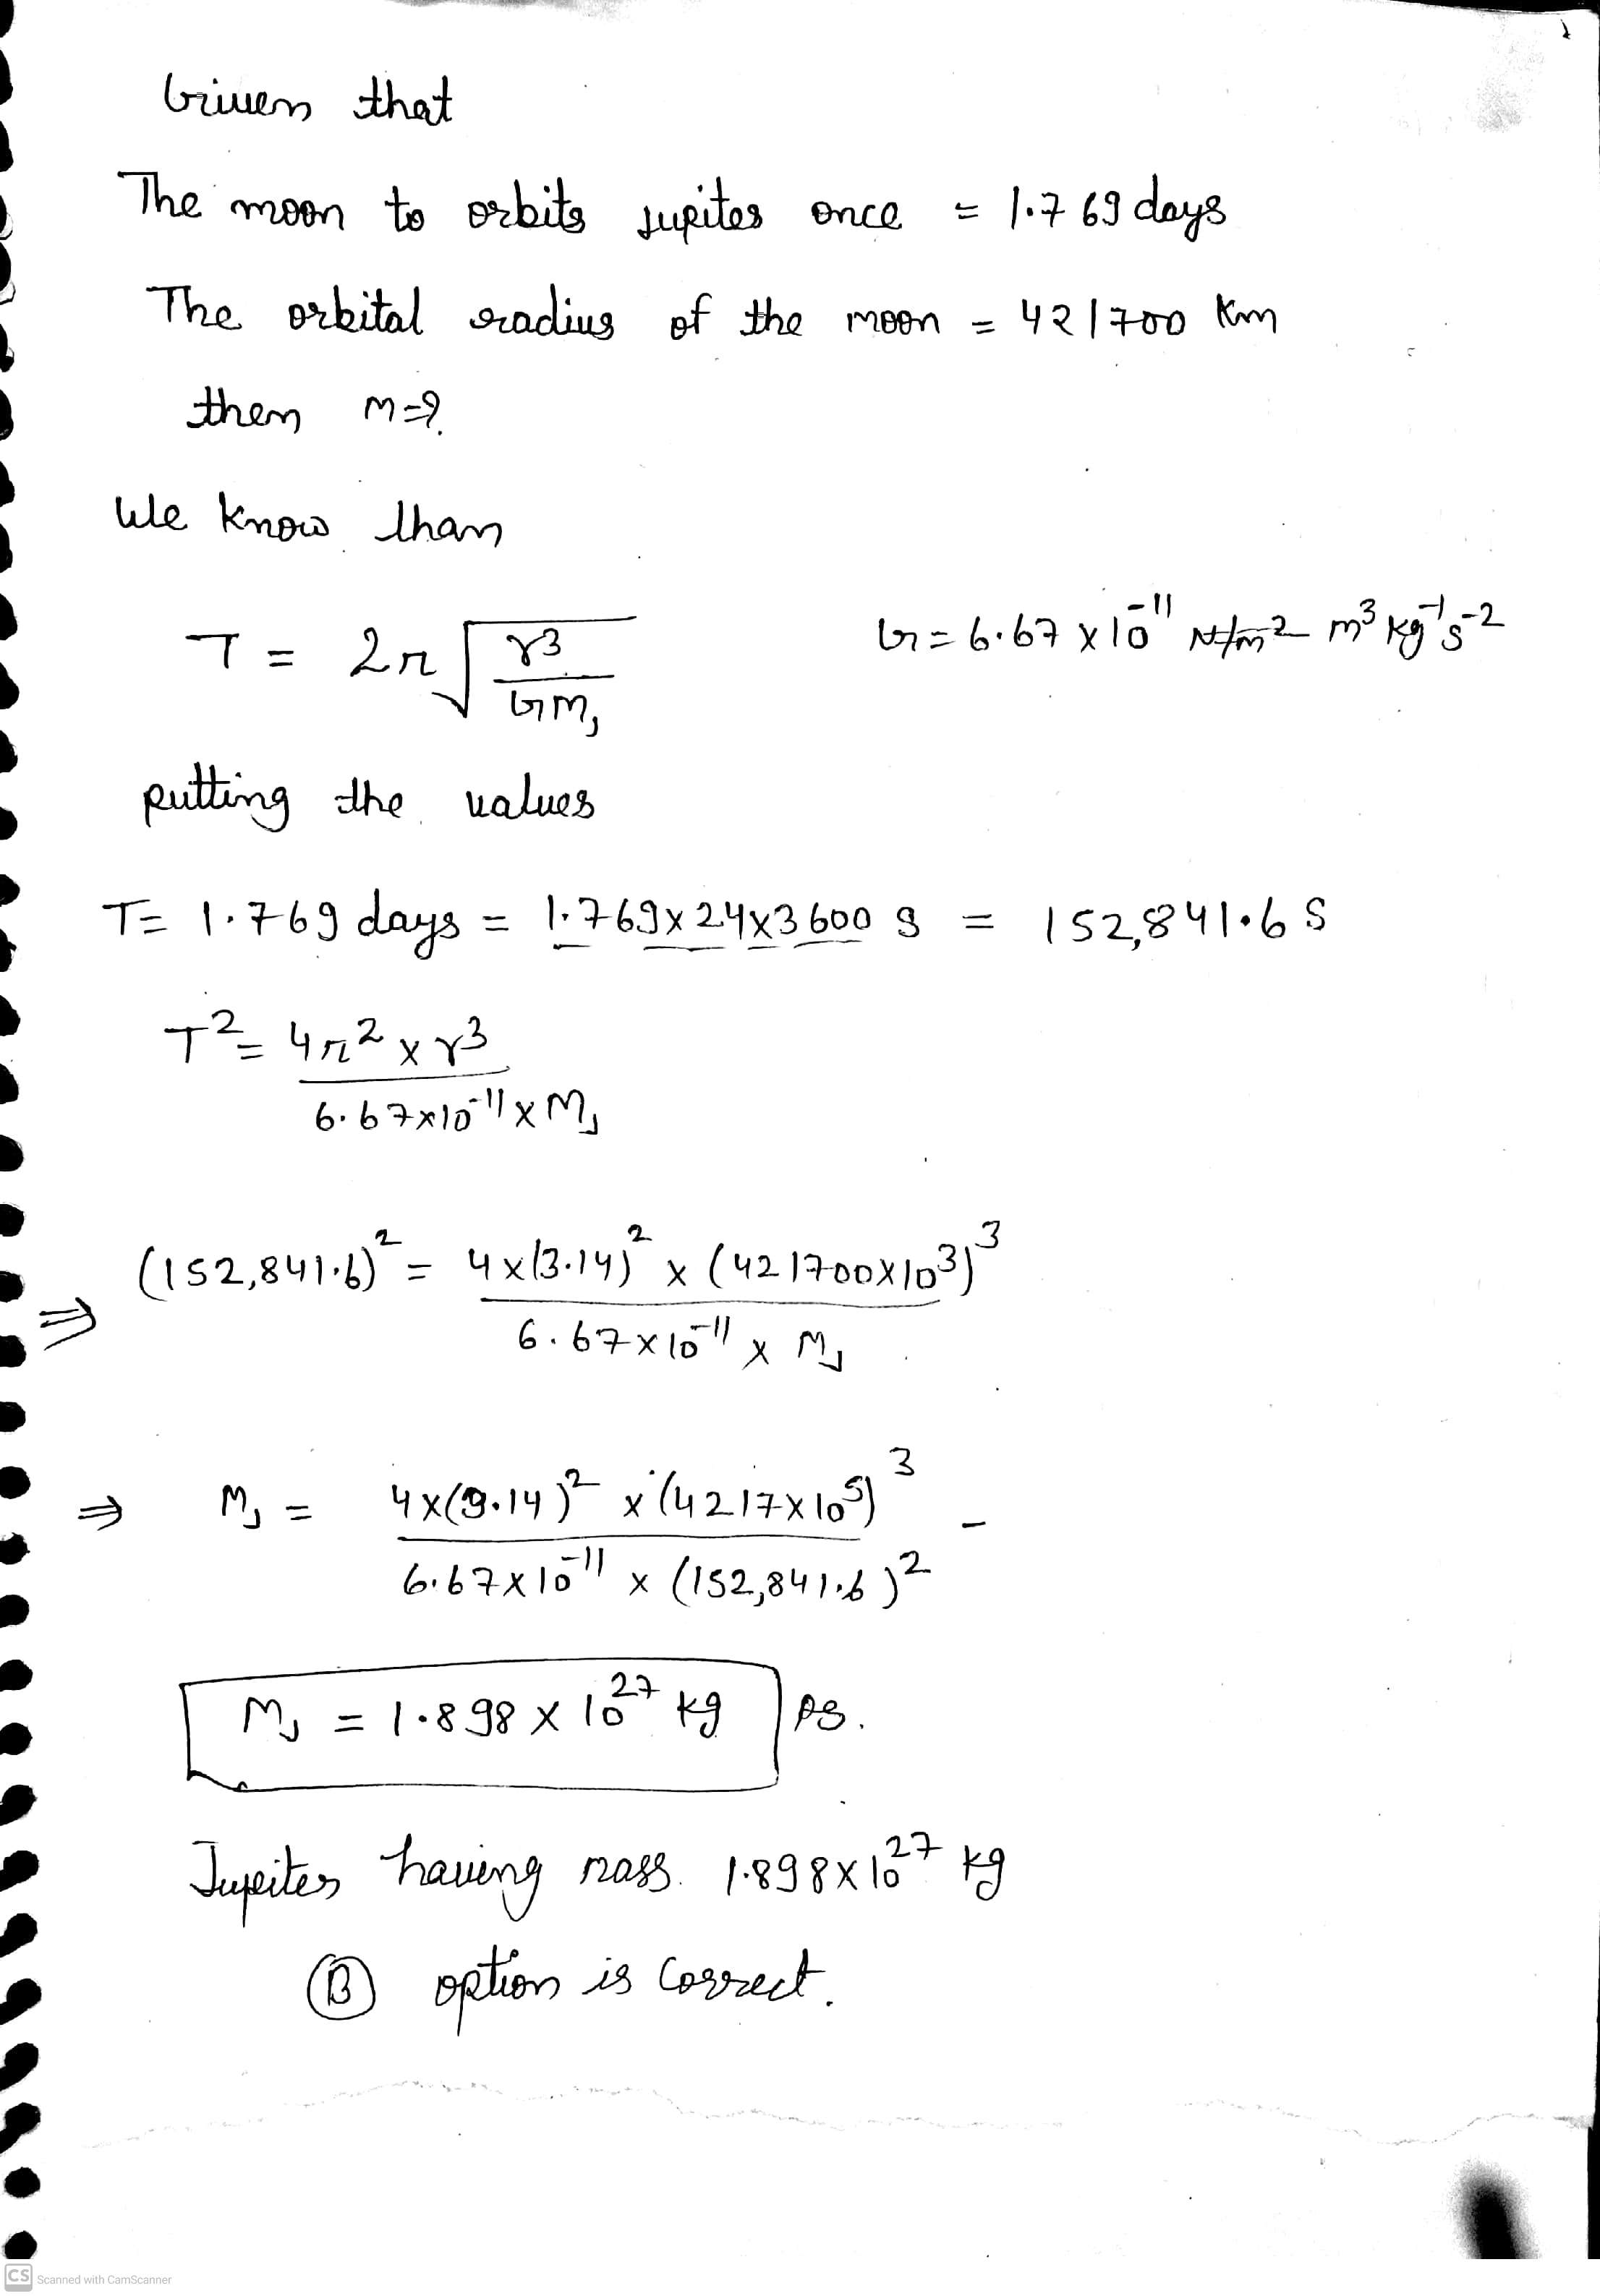 Given that
The moon to orbits Jupiter once = 1.769 days
The orbital radius of the moon = 421700 Km
then M=?
We know than
T = 2π √(r3/GMJ)
G = 6.67 x 10^-11 m^3 kg^-1 s^-2
putting the values
T = 1.769 days = 1.769 x 24 x 3600 s = 152,841.6 s
T^2 = 4π^2 x r^3 / 6.67x10^-11 x MJ
⇒ (152,841.6)^2 = 4x(3.14)^2 x (421700x10^3)^3 / 6.67x10^-11 x MJ
⇒ MJ = 4x(3.14)^2 x (4217x10^5)^3 / 6.67x10^-11 x (152,841.6)^2
MJ = 1.898 x 10^27 kg
Jupiter having mass. 1.898x10^27 kg
(B) option is correct.
CS Scanned with CamScanner